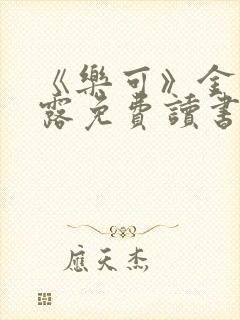 《樂可》全
露免費讀書
應天杰